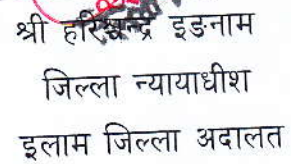 श्री हरिश्चन्द्र इङनाम
जिल्ला न्यायाधीश
इलाम जिल्ला अदालत